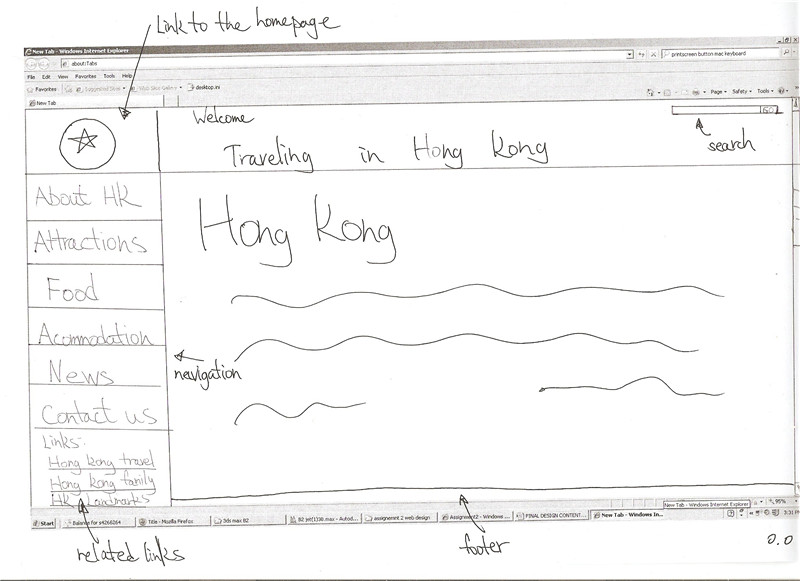 Link to the homepage
New Tab - Windows Internet Explorer
about:Tabs
printscreen button mac keyboard
File Edit View Favorites Tools Help
Favorites
desktop.ini
New Tab
Page Safety Tools
Welcome
GO
Traveling in Hong Kong
search
About HK
Hong Kong
Attractions
Food
Acommodation
navigation
News
Contact us
Links:
Hong kong travel
Hong kong family
HK Landmarks
New Tab - Windows Internet Explorer
95%
Start
Balance for s4266264
Title - Mozilla Firefox
3ds max B2
assignment 2 web design
Assignment2 - Windows ...
FINAL DESIGN CONTENT...
New Tab - Windows In...
3:31
related links
footer
0.0